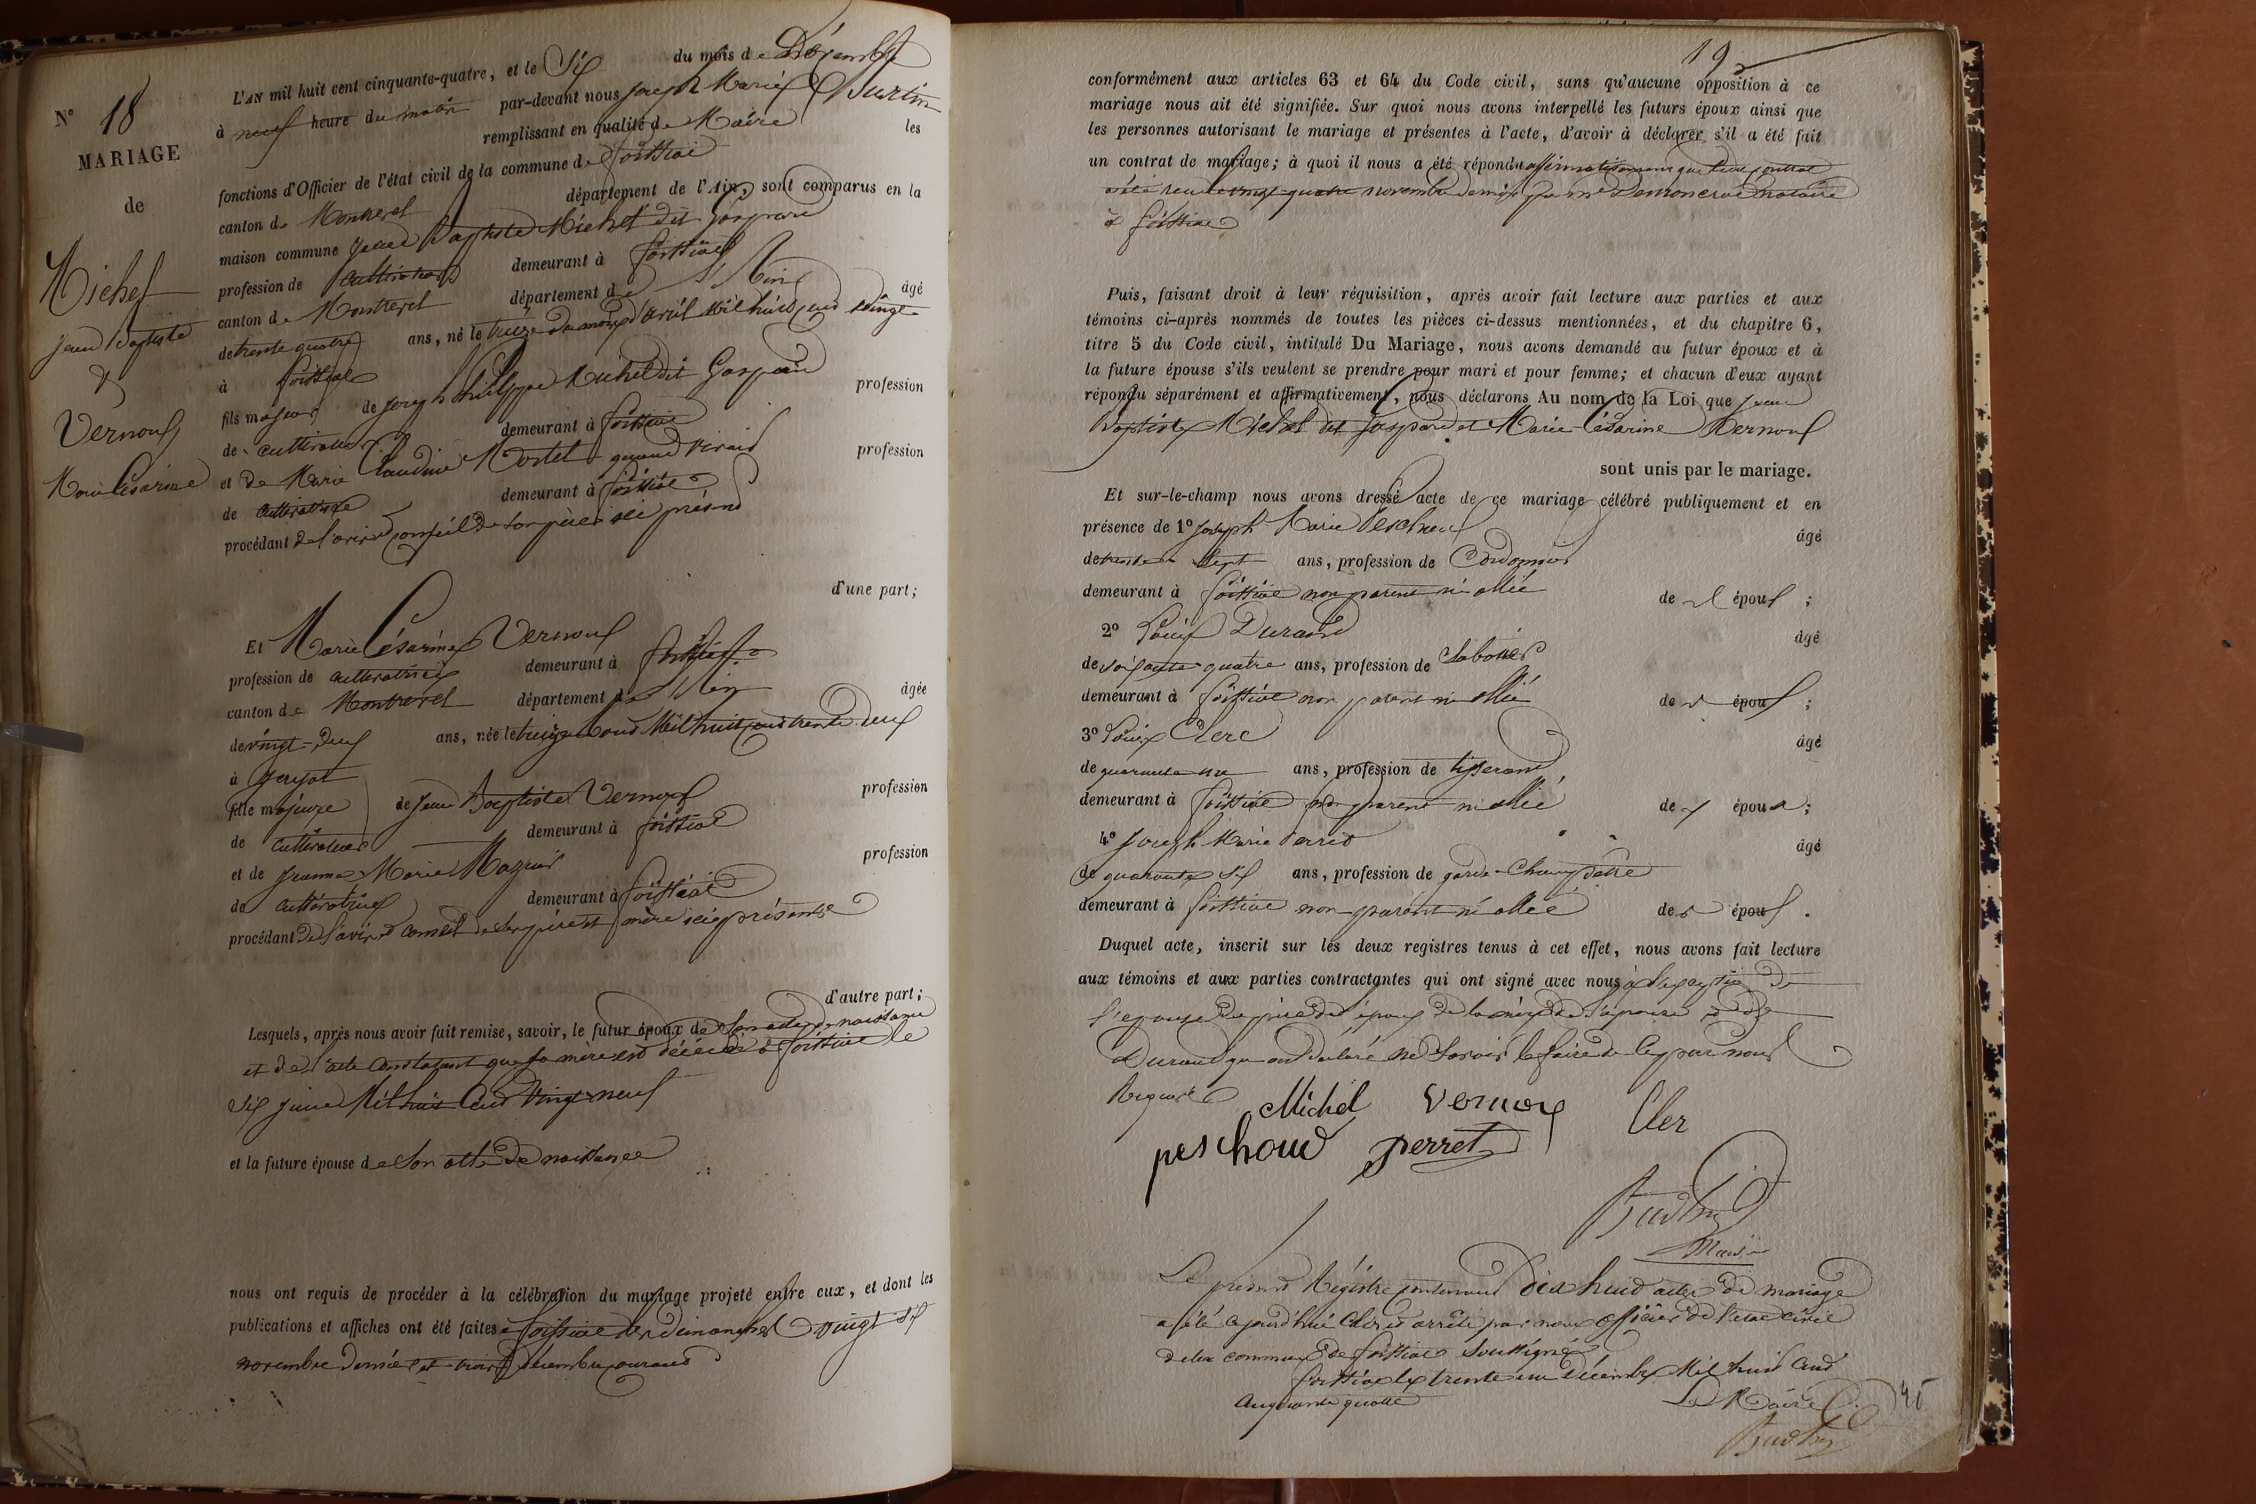 N° 18
MARIAGE
de
Michel
jean Baptiste
&
Vernoux
Marie Césarine
L'AN mil huit cent cinquante-quatre, et le Six du mois de Décembre
à neuf heure du matin par-devant nous joseph Marie
remplissant en qualité de Maire les
fonctions d'Officier de l'état civil de la commune de foissiat
canton de Montrevel département de l'Ain, sont comparus en la
maison commune jean Baptiste Michel dit Gaspard
profession de cultivateur demeurant à foissiat
canton de Montrevel département de l'Ain âgé
de trente quatre ans, né le treize du mois d'avril mil huit cent vingt
à foissiat
fils majeur de joseph Philippe Michel dit Gaspard profession
de cultivateur demeurant à foissiat
et de Marie Claudine Mortel quand vivait profession
de cultivatrice demeurant à foissiat
procédant de l'avis et conseil de son père ici présent
d'une part;
Et Marie Césarine Vernoux
profession de cultivatrice demeurant à foissiat
canton de Montrevel département de l'Ain âgée
de vingt-deux ans, née le treize aoust Mil huit cent trente deux
à jayat
fille majeure de jean Baptiste Vernoux profession
de cultivateur demeurant à foissiat
et de jeanne Marie Mazuir profession
de cultivatrice demeurant à foissiat
procédant de l'avis et conseil de ses père et mère ici présents
d'autre part;
Lesquels, après nous avoir fait remise, savoir, le futur époux de son acte de naissance
et de l'acte constatant que sa mère est décédée à foissiat le
Six juin Mil huit Cent Vingt neuf
et la future épouse de son acte de naissance
nous ont requis de procéder à la célébration du mariage projeté entre eux, et dont les
publications et affiches ont été faites à foissiat les dimanches vingt six
novembre dernier et trois décembre courant
19
conformément aux articles 63 et 64 du Code civil, sans qu'aucune opposition à ce
mariage nous ait été signifiée. Sur quoi nous avons interpellé les futurs époux ainsi que
les personnes autorisant le mariage et présentes à l'acte, d'avoir à déclarer s'il a été fait
un contrat de mariage; à quoi il nous a été répondu affirmativement que leur contrat
a été reçu le vingt quatre novembre dernier par me notaire
à foissiat
Puis, faisant droit à leur réquisition, après avoir fait lecture aux parties et aux
témoins ci-après nommés de toutes les pièces ci-dessus mentionnées, et du chapitre 6,
titre 5 du Code civil, intitulé Du Mariage, nous avons demandé au futur époux et à
la future épouse s'ils veulent se prendre pour mari et pour femme; et chacun d'eux ayant
répondu séparément et affirmativement, nous déclarons Au nom de la Loi que jean
Baptiste Michel dit Gaspard et Marie Césarine Vernoux
sont unis par le mariage.
Et sur-le-champ nous avons dressé acte de ce mariage célébré publiquement et en
présence de 1° joseph Marie Peschoux âgé
de trente Sept ans, profession de Cordonnier
demeurant à foissiat non parent ni allié de l'époux ;
2° Louis Durand âgé
de soixante quatre ans, profession de Sabotier
demeurant à foissiat non parent ni allié des époux ;
3° Louis Clerc âgé
de quarante un ans, profession de tisserand
demeurant à foissiat non parent ni allié des époux ;
4° joseph Marie Perret âgé
de quarante six ans, profession de garde-Champêtre
demeurant à foissiat non-parent ni allié des époux .
Duquel acte, inscrit sur les deux registres tenus à cet effet, nous avons fait lecture
aux témoins et aux parties contractantes qui ont signé avec nous à l'exception de
l'épouse du père de l'époux de la mère de l'épouse et de
Durand qui ont déclaré ne Savoir le faire de ce par nous
Requis
Michel Vernoux Cler
peschoud perret
Maire
Le présent Régistre contenant dix huit actes de mariage
a été aujourd'hui Clos et arrêté par nous officier de l'état civil
de la commune de foissiat Soussigné
foissiat le trente un Décembre Mil huit Cent
Cinquante quatre
Le Maire